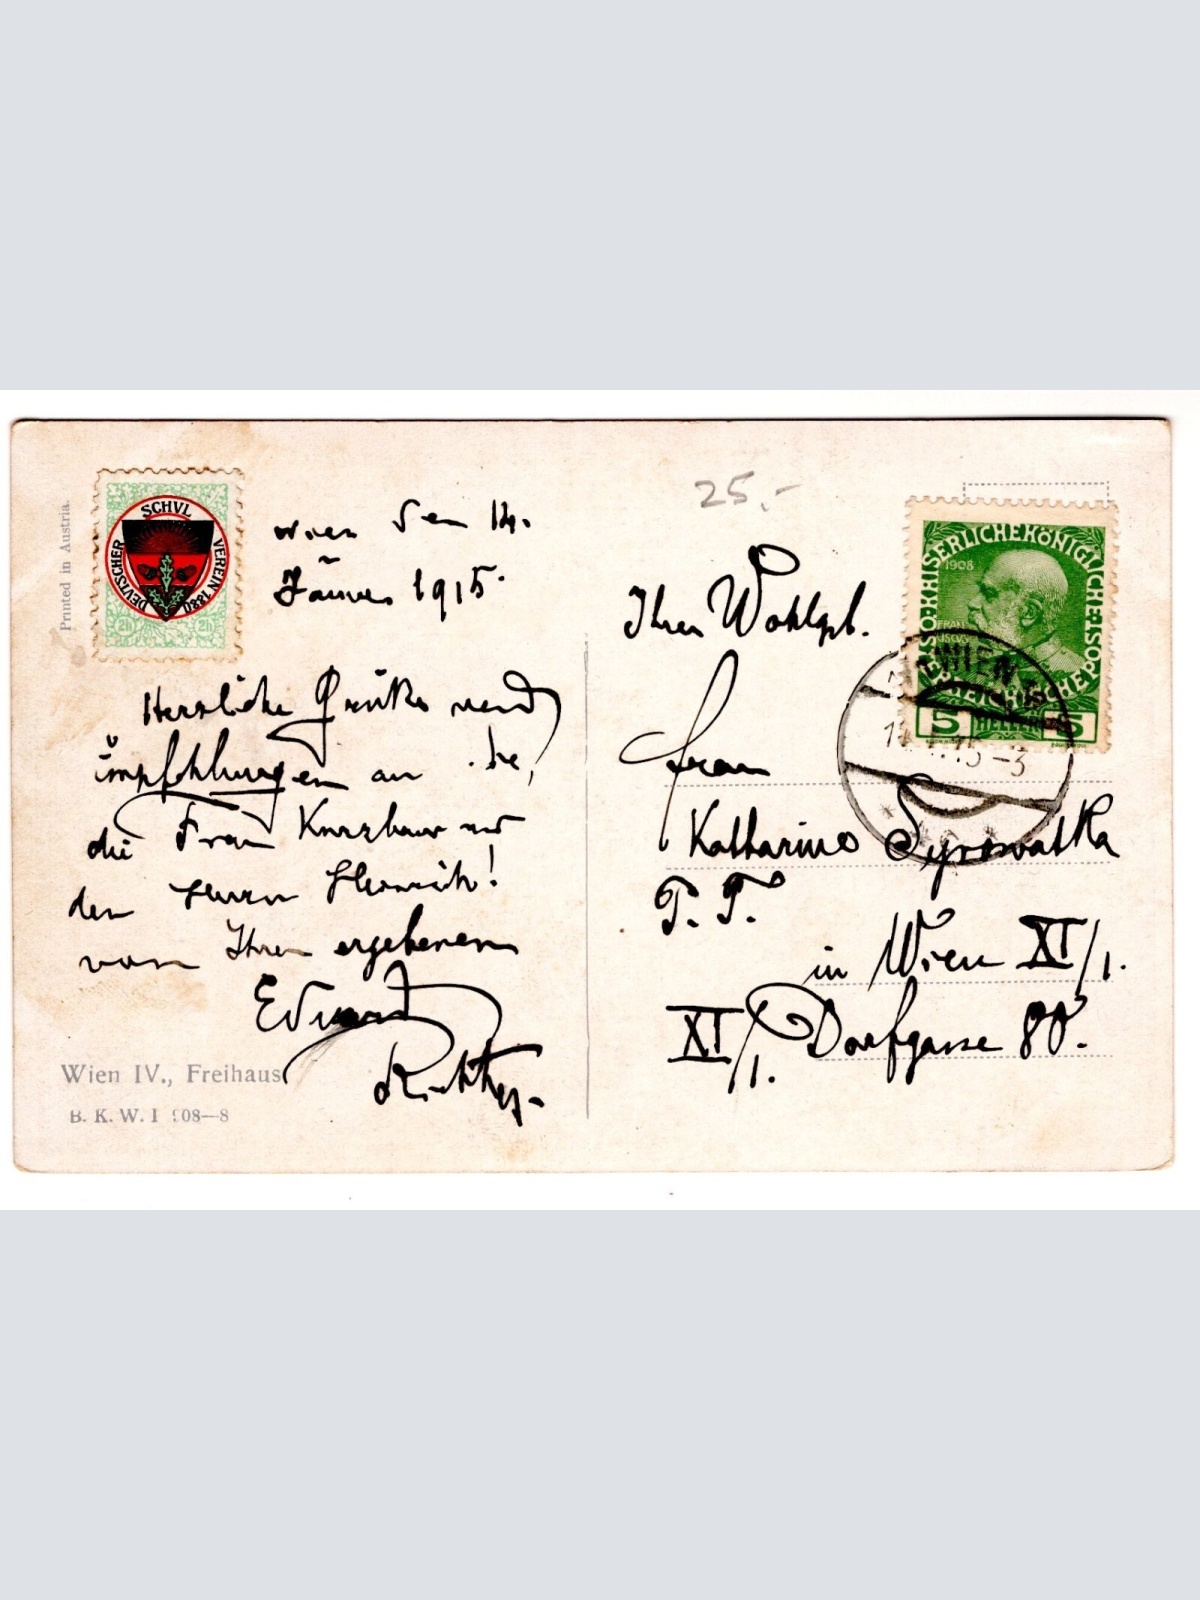 Printed in Austria.
DEUTSCHER SCHVL VEREIN 1880
2h 2h
Wien den 14.
Jänner 1915.
Herzliche Grüße und
Empfehlungen an Sie,
die Frau Kurzbauer und
den Herrn Heinrich!
von Ihrem ergebenen
Eduard
Richter.
Wien IV., Freihaus
B. K. W. I 908—8
25.-
KAISERLICHE KÖNIGLICHE ÖSTERREICHISCHE POST
1908
FRANZ
5 HELLER 5
WIEN
15-3
Ihrer Wohlgb.
Frau
Katharina Syrowatka
P. T.
in Wien XI/1.
XI/1. Dorfgasse 88.